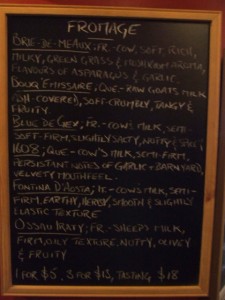 FROMAGE
BRIE-DE-MEAUX; FR.-COW, SOFT, RICH,
MILKY, GREEN GRASS & MUSHROOM AROMA,
FLAVOURS OF ASPARAGUS & GARLIC.
BOUQ' EMISSAIRE; QUE-RAW GOATS MILK
(ASH COVERED), SOFT-CRUMBLY, TANGY &
FRUITY.
BLUE DE GEX; FR.-COW'S MILK, SEMI-
SOFT-FIRM, SLIGHTLY SALTY, NUTTY &
1608; QUE-COW'S MILK, SEMI-FIRM,
PERSISTANT NOTES OF GARLIC & BARNYARD,
VELVETY MOUTHFEEL.
FONTINA D'AOSTA; IT-COWS MILK, SEMI-
FIRM, EARTHY, HERBY, SMOOTH & SLIGHTLY
ELASTIC TEXTURE
OSSAU IRATY; FR-SHEEPS MILK,
FIRM, OILY TEXTURE, NUTTY, OLIVEY
& FRUITY
1 FOR $5, 3 FOR $13, TASTING $18